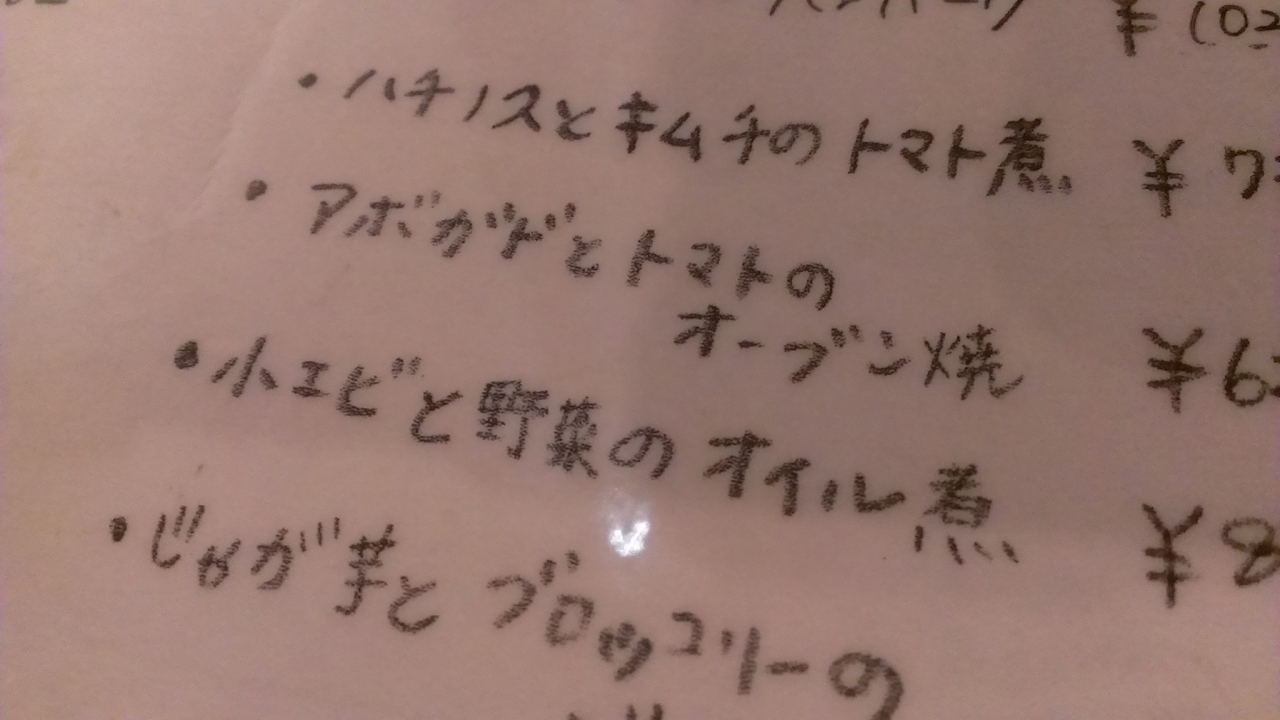 ¥102
・ハチノスとキムチのトマト煮 ¥7
・アボガドとトマトの
オーブン焼 ¥6
・小エビと野菜のオイル煮 ¥8
・じゃが芋とブロッコリーの